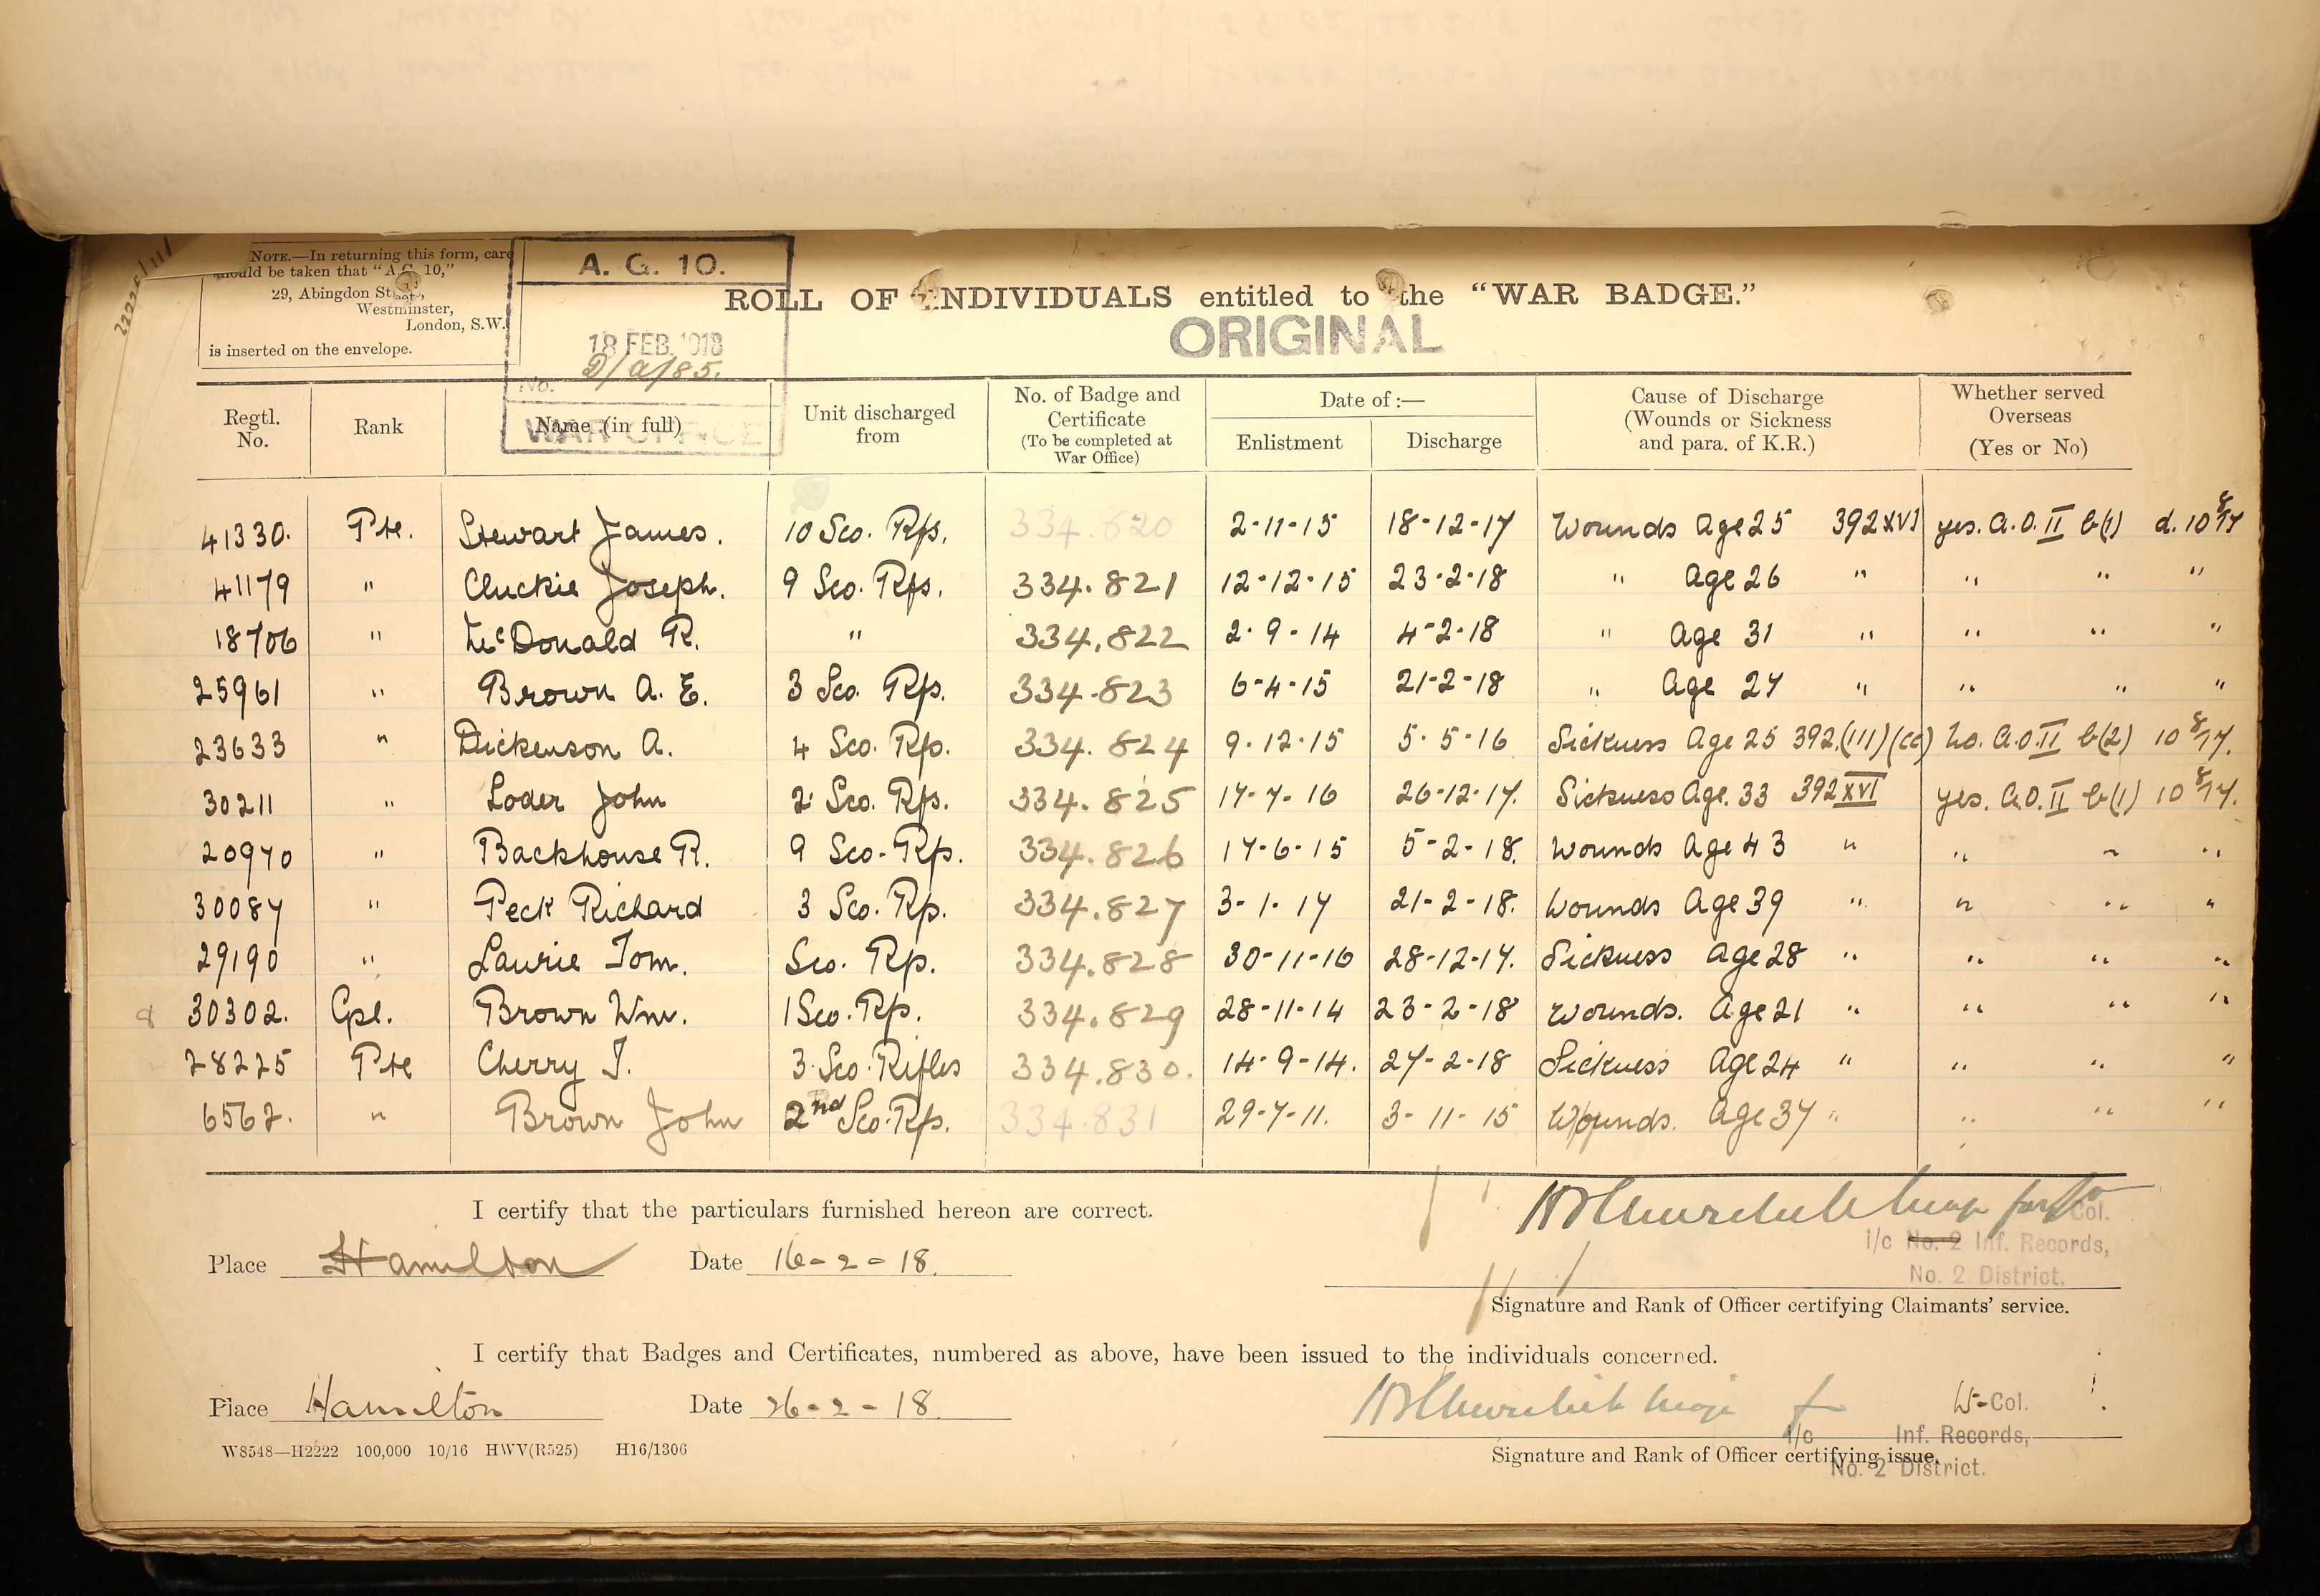 NOTE.—In returning this form, care
should be taken that "A.G. 10,"
29, Abingdon Street,
Westminster,
London, S.W.
is inserted on the envelope.
A. G. 10.
18 FEB. 1918
No. D/a/85.
WAR OFFICE
ROLL OF INDIVIDUALS entitled to the "WAR BADGE."
ORIGINAL
Regtl. No. Rank Name (in full) Unit discharged from No. of Badge and Certificate (To be completed at War Office) Date of :— Enlistment Discharge Cause of Discharge (Wounds or Sickness and para. of K.R.) Whether served Overseas (Yes or No)
41330. Pte. Stewart James. 10 Sco. Rfs. 334.820 2-11-15 18-12-17 Wounds Age 25 392 XVI yes. A.O. II b(1) d. 10 8/17
41179 " Cluckie Joseph. 9 Sco. Rfs. 334.821 12-12-15 23-2-18 " Age 26 " " " "
18706 " McDonald R. " 334.822 2-9-14 4-2-18 " Age 31 " " " "
25961 " Brown A. E. 3 Sco. Rfs. 334.823 6-4-15 21-2-18 " Age 27 " " " "
23633 " Dickenson A. 4 Sco. Rfs. 334.824 9-12-15 5-5-16 Sickness Age 25 392.(III)(cc) No. A.O. II b(2) 10 8/17.
30211 " Loder John 2 Sco. Rfs. 334.825 17-7-16 26-12-17. Sickness Age. 33 392 XVI yes. A.O. II b(1) 10 8/17.
20970 " Backhouse R. 9 Sco. Rfs. 334.826 17-6-15 5-2-18. Wounds Age 43 " " " "
30087 " Peck Richard 3 Sco. Rfs. 334.827 3-1-17 21-2-18. Wounds Age 39 " " " "
29190 " Laurie Tom. Sco. Rfs. 334.828 30-11-16 28-12-17. Sickness Age 28 " " " "
30302. Cpl. Brown Wm. 1 Sco. Rfs. 334.829 28-11-14 23-2-18 Wounds. Age 21 " " " "
28225 Pte Cherry J. 3 Sco. Rifles 334.830. 14-9-14. 27-2-18 Sickness Age 24 " " " "
6562. " Brown John 2nd Sco. Rfs. 334.831 29-7-11. 3-11-15 Wounds. Age 37 " " " "
I certify that the particulars furnished hereon are correct.
Place Hamilton Date 16-2-18.
Col.
i/c No. 2 Inf. Records,
No. 2 District.
Signature and Rank of Officer certifying Claimants' service.
I certify that Badges and Certificates, numbered as above, have been issued to the individuals concerned.
Place Hamilton Date 26-2-18.
Col.
i/c Inf. Records,
No. 2 District.
Signature and Rank of Officer certifying issue.
W8548—H2222 100,000 10/16 HWV(R525) H16/1306